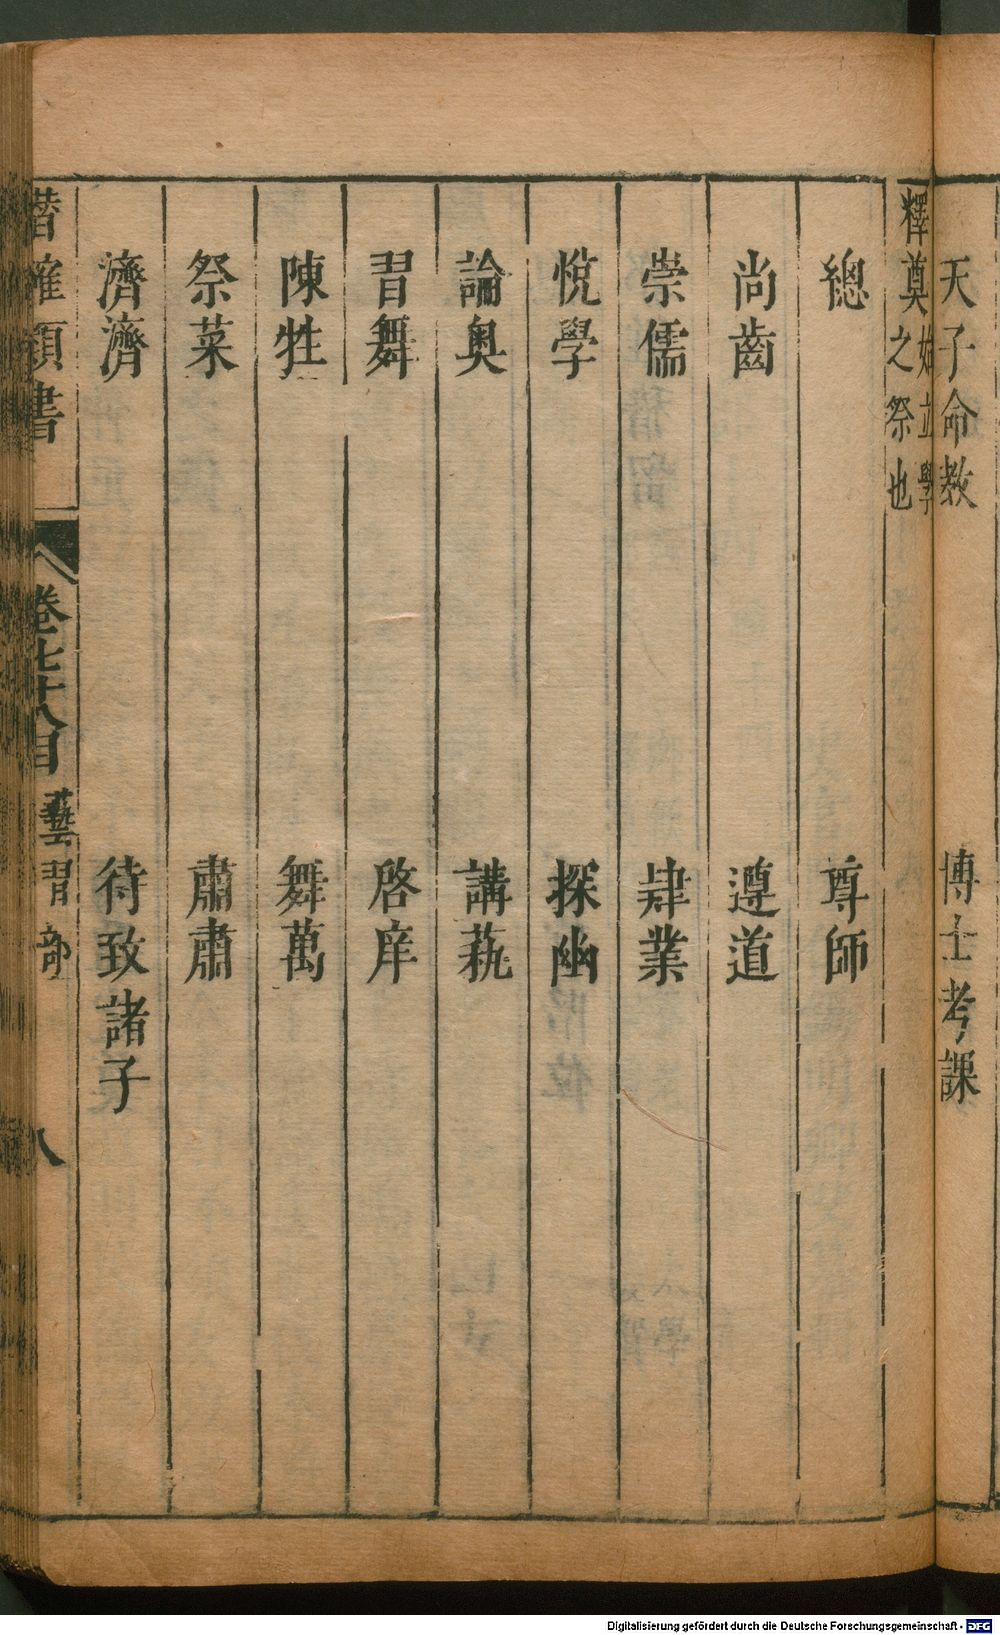 天子命教 博士考課
釋奠 始立學之祭也
總 尊師
尚齒 遵道
崇儒 肄業
悅學 探幽
論奧 講蓺
習舞 啓庠
陳牲 舞萬
祭菜 肅肅
濟濟 待致諸子
潛確類書 卷七十八目 藝習部 八
Digitalisierung gefördert durch die Deutsche Forschungsgemeinschaft - DFG